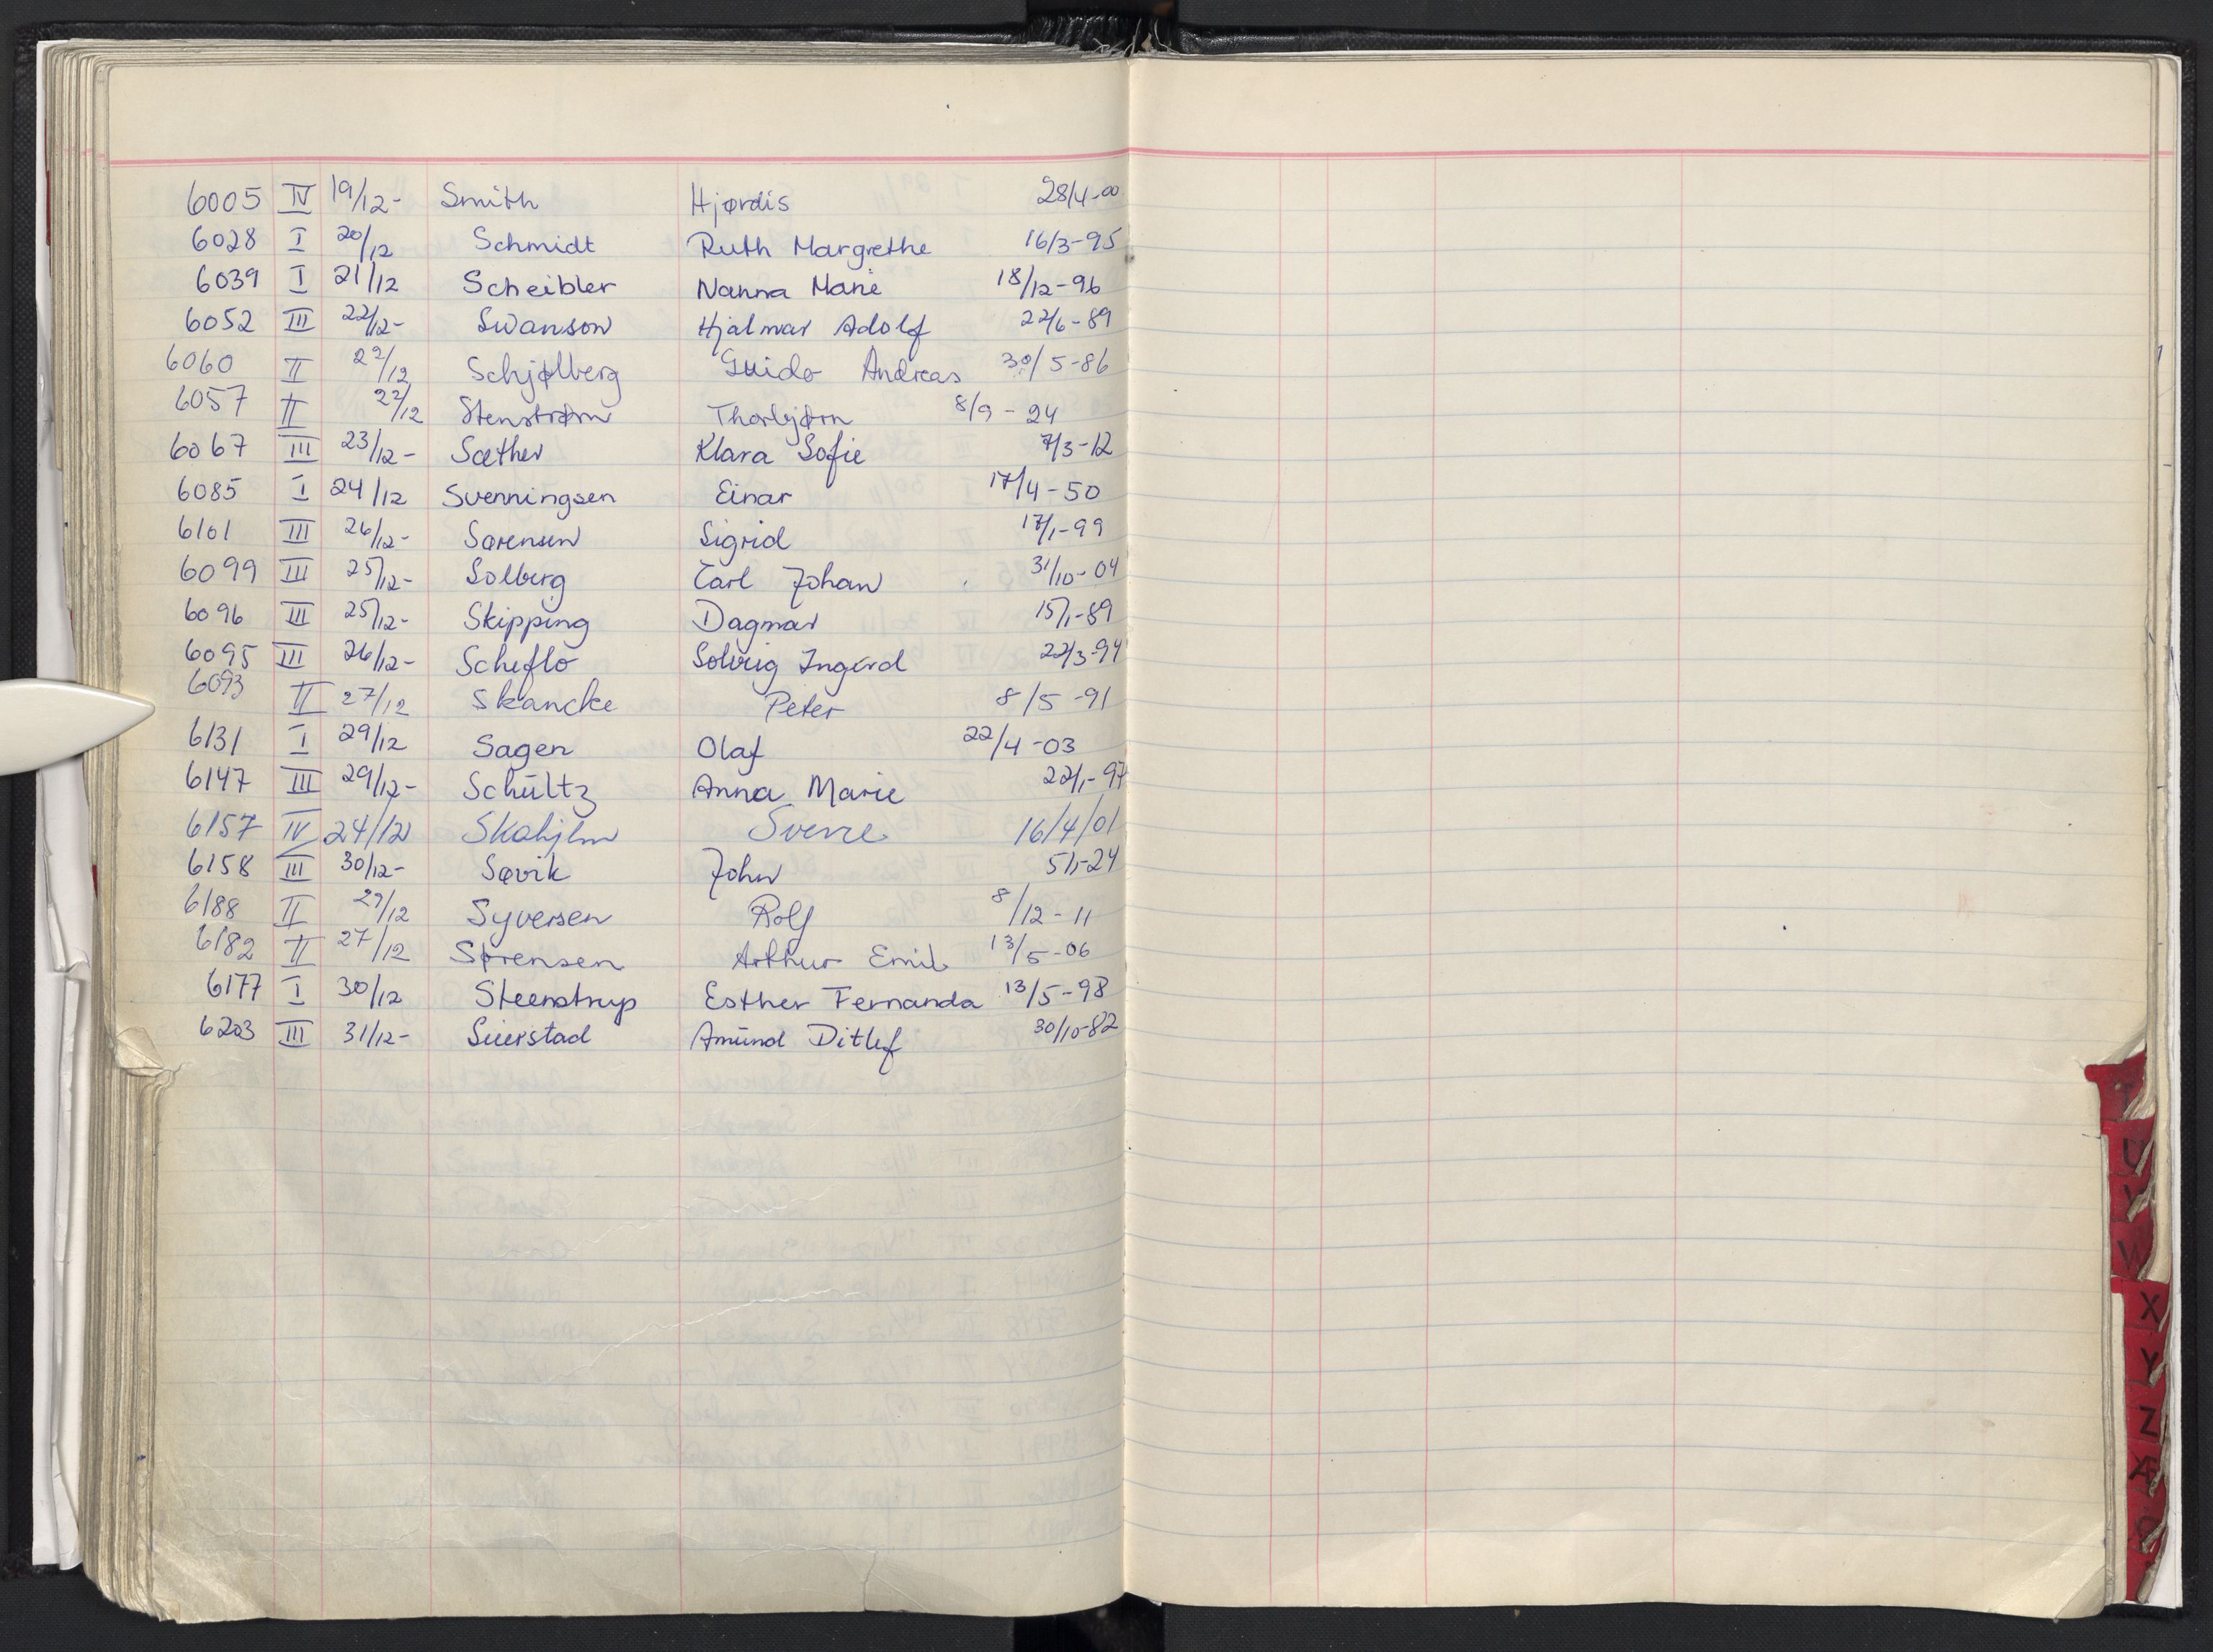 6005 IV 19/12- Smith Hjørdis 28/4-00
6028 I 20/12 Schmidt Ruth Margrethe 16/3-95
6039 I 21/12 Scheibler Nanna Marie 18/12-96
6052 III 22/12- Swanson Hjalmar Adolf 22/6-89
6060 II 22/12 Schjølberg Guido Andreas 30/5-86
6057 II 22/12 Stenstrøm Thorbjørn 8/9-24
6067 III 23/12- Sæther Klara Sofie 7/3-12
6085 I 24/12 Svenningsen Einar 17/4-50
6101 III 26/12- Sørensen Sigrid 17/1-99
6099 III 25/12- Solberg Carl Johan 31/10-04
6096 III 25/12- Skipping Dagmar 15/1-89
6095 III 26/12- Scheflo Solveig Ingerd 22/3-94
6093 II 27/12 Skancke Peter 8/5-91
6131 I 29/12 Sagen Olaf 22/4-03
6147 III 29/12- Schultz Anna Marie 22/1-97
6157 IV 24/12 Sverre 16/4/01
6158 III 30/12- Søvik John 5/1-24
6188 II 29/12 Syversen Rolf 8/12-11
6182 II 27/12 Sørensen Arthur Emil 13/5-06
6177 I 30/12 Steenstrup Esther Fernanda 13/5-98
6203 III 31/12- Sierstad Amund Ditlef 30/10-82
T
U
V
W
X
Y
Z
Æ
Ø